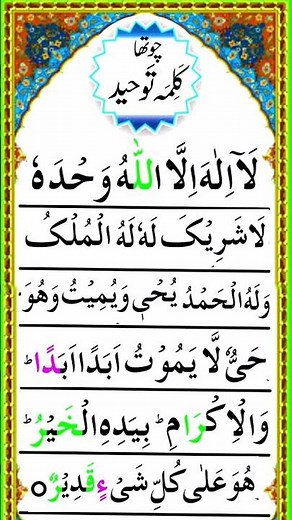 چوتھا
کلمہ توحید
لَآ اِلٰهَ اِلَّا اللّٰهُ وَحْدَهٗ
لَا شَرِيْكَ لَهٗ لَهُ الْمُلْكُ
وَلَهُ الْحَمْدُ يُحْيٖ وَيُمِيْتُ وَهُوَ
حَىٌّ لَّا يَمُوْتُ اَبَدًا اَبَدًاؕ
وَالْاِكْرَامِؕ بِيَدِهِ الْخَيْرُؕ
هُوَ عَلٰى كُلِّ شَىْءٍ قَدِيْرٌ○